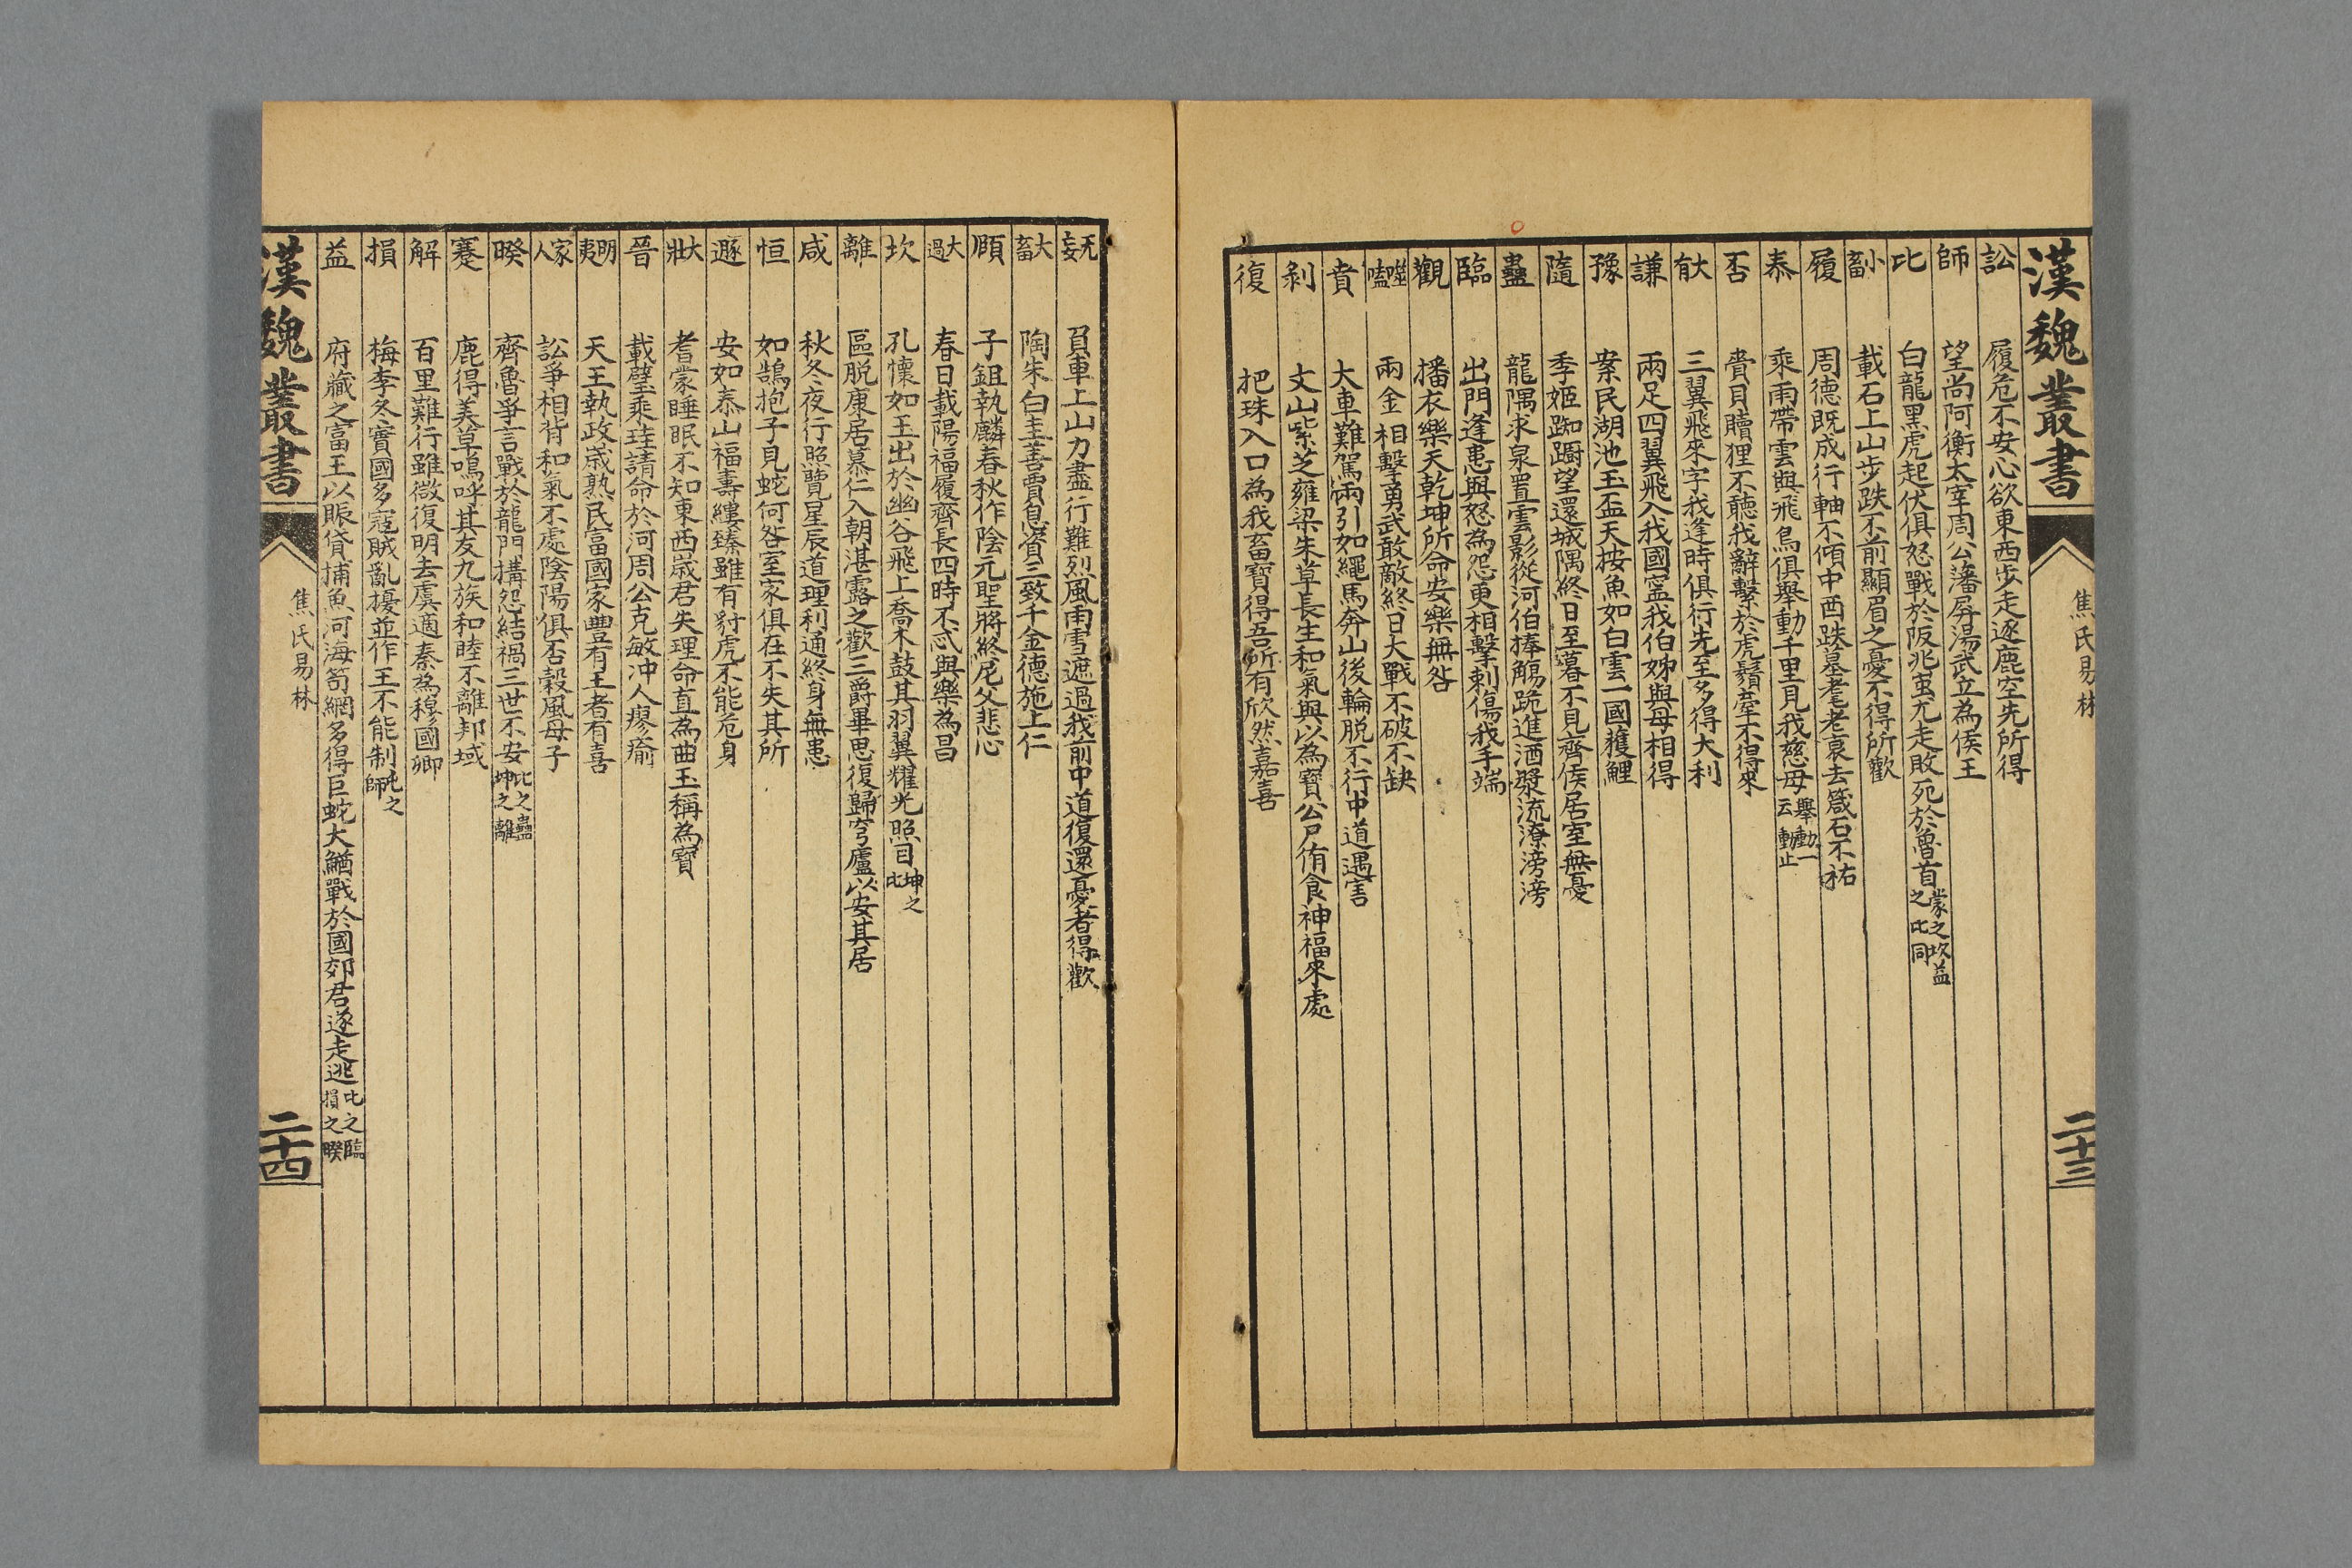 漢魏叢書 焦氏易林 二十三
訟 履危不安心欲東西步走逐鹿空先所得
師 望尚阿衡太宰周公藩屏湯武立為侯王
比 白龍黑虎起伏俱怒戰於阪兆蚩尤走敗死於魯首 蒙之坎益之比同
小畜 載石上山步跌不前顯眉之憂不得所歡
履 周德既成行軸不傾申酉跌暮耄老衰去箴石不祐
泰 乘雨帶雲與飛鳥俱舉動千里見我慈母 舉動一云動止
否 貴貝贖狸不聽我辭繫於虎鬚牽不得來
大有 三翼飛來字我逢時俱行先至多得大利
謙 兩足四翼飛入我國寧我伯姊與母相得
豫 案民湖池玉盃天按魚如白雲一國獲鯉
隨 季姬踟躕望還城隅終日至暮不見齊侯居室無憂
蠱 龍隅求泉置雲影從河伯捧觴跪進酒漿流潦滂滂
臨 出門逢患與怒為怨更相擊刺傷我手端
觀 播衣樂天乾坤所命安樂無咎
噬嗑 兩金相擊勇武敢敵終日大戰不破不缺
賁 大車難駕兩引如繩馬奔山後輪脱不行中道遇害
剝 文山紫芝雍梁朱草長生和氣與以為寶公尸侑食神福來處
復 把珠入口為我畜寶得吾所有欣然嘉喜
无妄 負車上山力盡行難烈風雨雪遮過我前中道復還憂者得歡
大畜 陶朱白圭善賈息資三致千金德施上仁
頤 子鉏執麟春秋作陰元聖將終尼父悲心
大過 春日載陽福履齊長四時不忒與樂為昌
坎 孔懷如玉出於幽谷飛上喬木鼓其羽翼耀光照目 坤之比
離 區脱康居慕仁入朝湛露之歡三爵畢恩復歸穹廬以安其居
咸 秋冬夜行照覽星辰道理利通終身無患
恒 如鵠抱子見蛇何咎室家俱在不失其所
遯 安如泰山福壽縷臻雖有豺虎不能危身
大壯 耆蒙睡眠不知東西歲君失理命直為曲玉稱為寶
晉 載璧乘珪請命於河周公克敏沖人瘳瘉
明夷 天王執政歲熟民富國家豐有王者有喜
家人 訟爭相背和氣不處陰陽俱否穀風母子
睽 齊魯爭言戰於龍門搆怨結禍三世不安 比之蠱坤之離
蹇 鹿得美草鳴呼其友九族和睦不離邦域
解 百里難行雖微復明去虞適秦為穆國卿
損 梅李冬實國多寇賊亂擾並作王不能制 屯之師
益 府藏之富王以賑貸捕魚河海笱網多得巨蛇大鰌戰於國郊君遂走逃 比之臨損之睽
漢魏叢書 焦氏易林 二十四